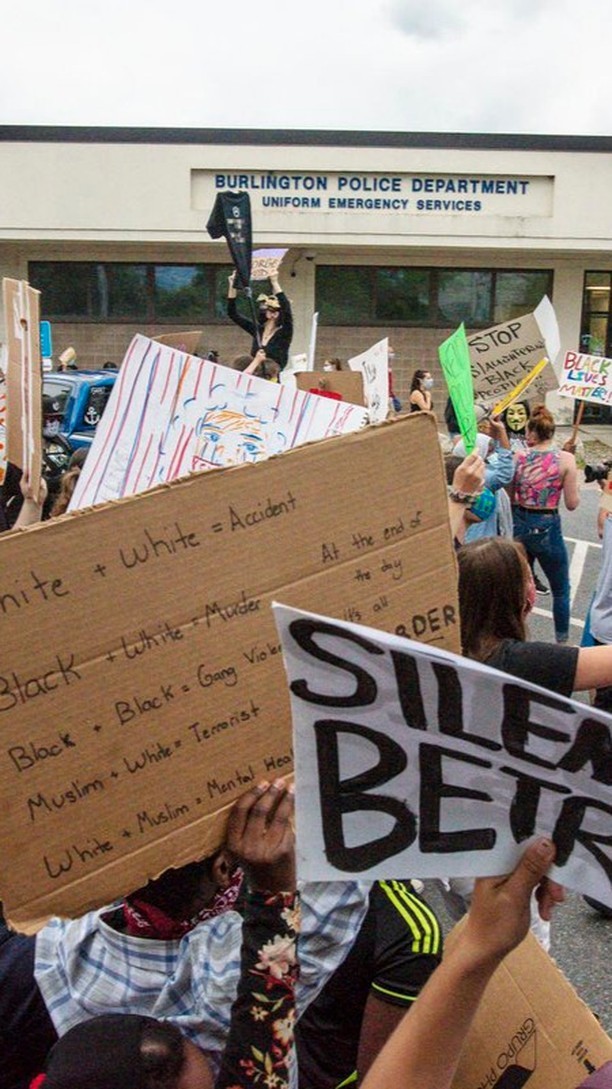 BURLINGTON POLICE DEPARTMENT
UNIFORM EMERGENCY SERVICES
STOP
SLAUGHTERING
BLACK
PEOPLE
BLACK
LIVES
MATTER!
hite + White = Accident
Black + White = Murder
Black + Black = Gang Viole
Muslim + White = Terrorist
White + Muslim = Mental Heal
At the end of
the day
it's all
RDER
SILEN
BETR
GRUPO P